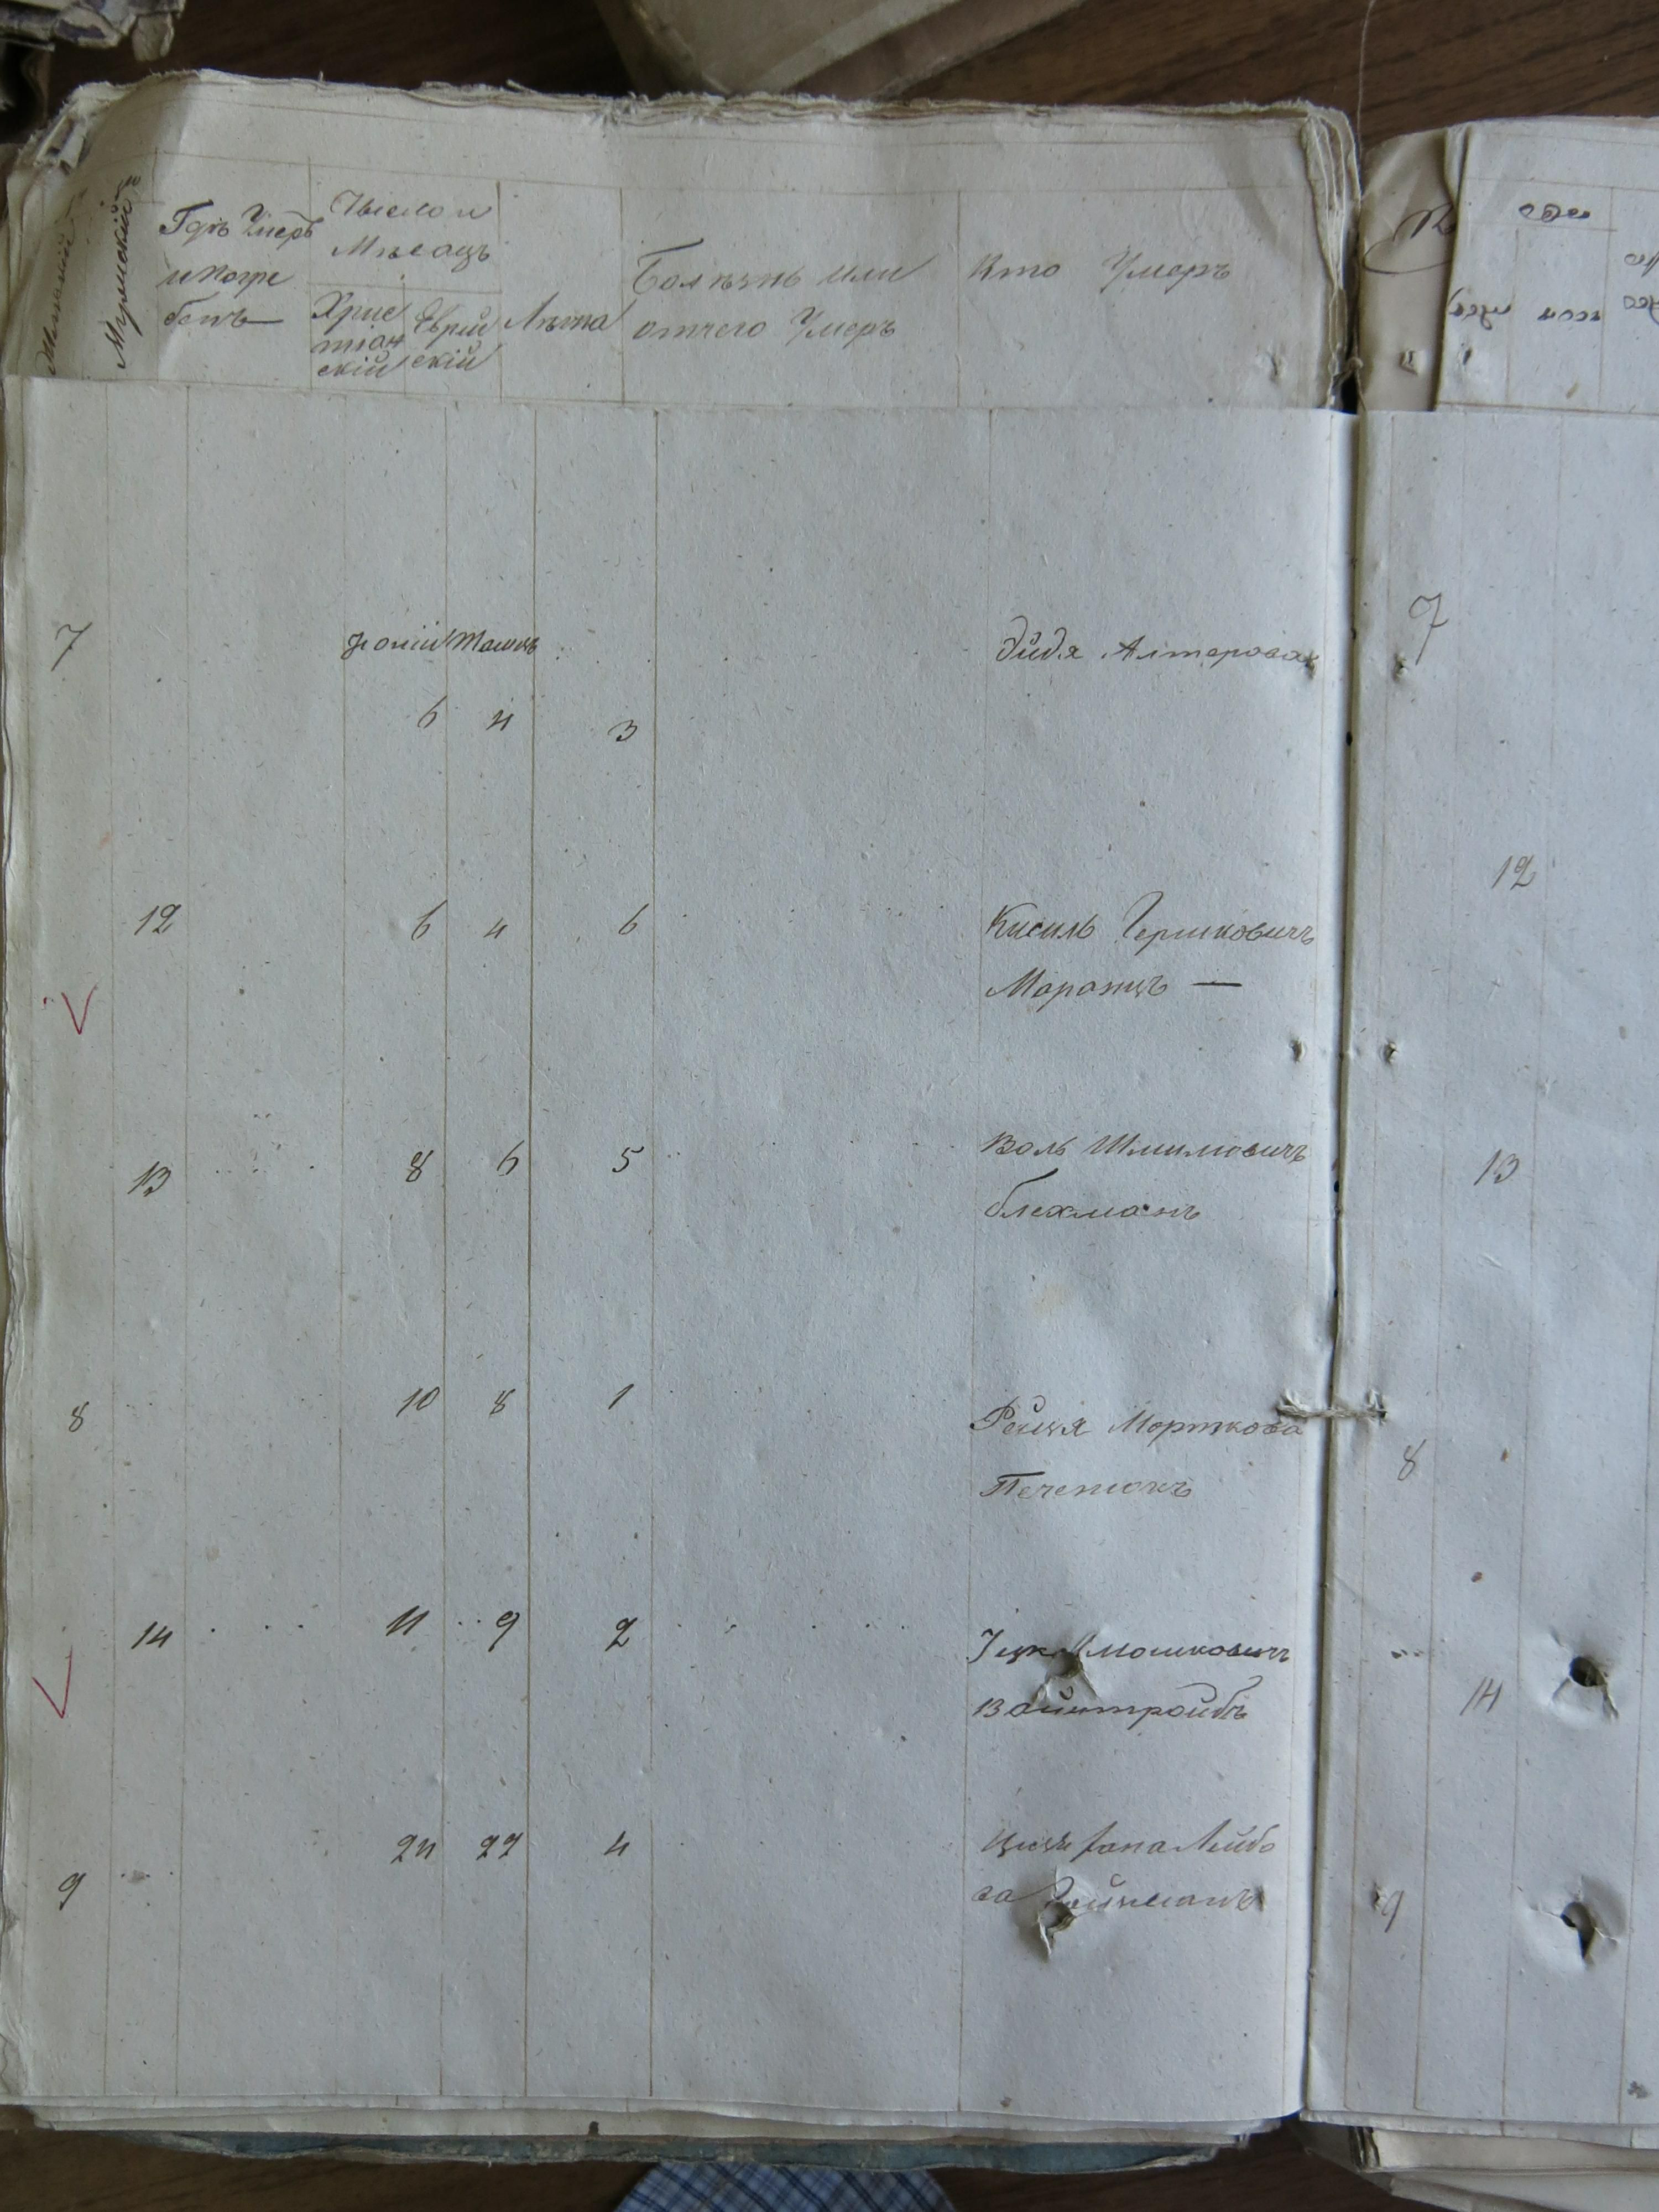 Женскій
Мужескій
Гдѣ Умеръ
и погре
бенъ
Число и
Мѣсяцъ
Хрис
тіан
скій
Еврей
скій
Лѣта
Болѣзнь или
отчего Умеръ
Кто Умеръ
7 Тамизъ Эйдя Алтерова 7
6 4 3
12 6 4 6 Кисиль Гершковичъ 12
Маранцъ —
13 8 6 5 Воль Шлимовичъ 13
блехманъ
8 10 8 1 Рейзя Морткова
Печенюкъ 8
14 11 9 2 Мошковичъ
Вайнтройбъ 14
24 22 4 Лейбо
9 ва 9